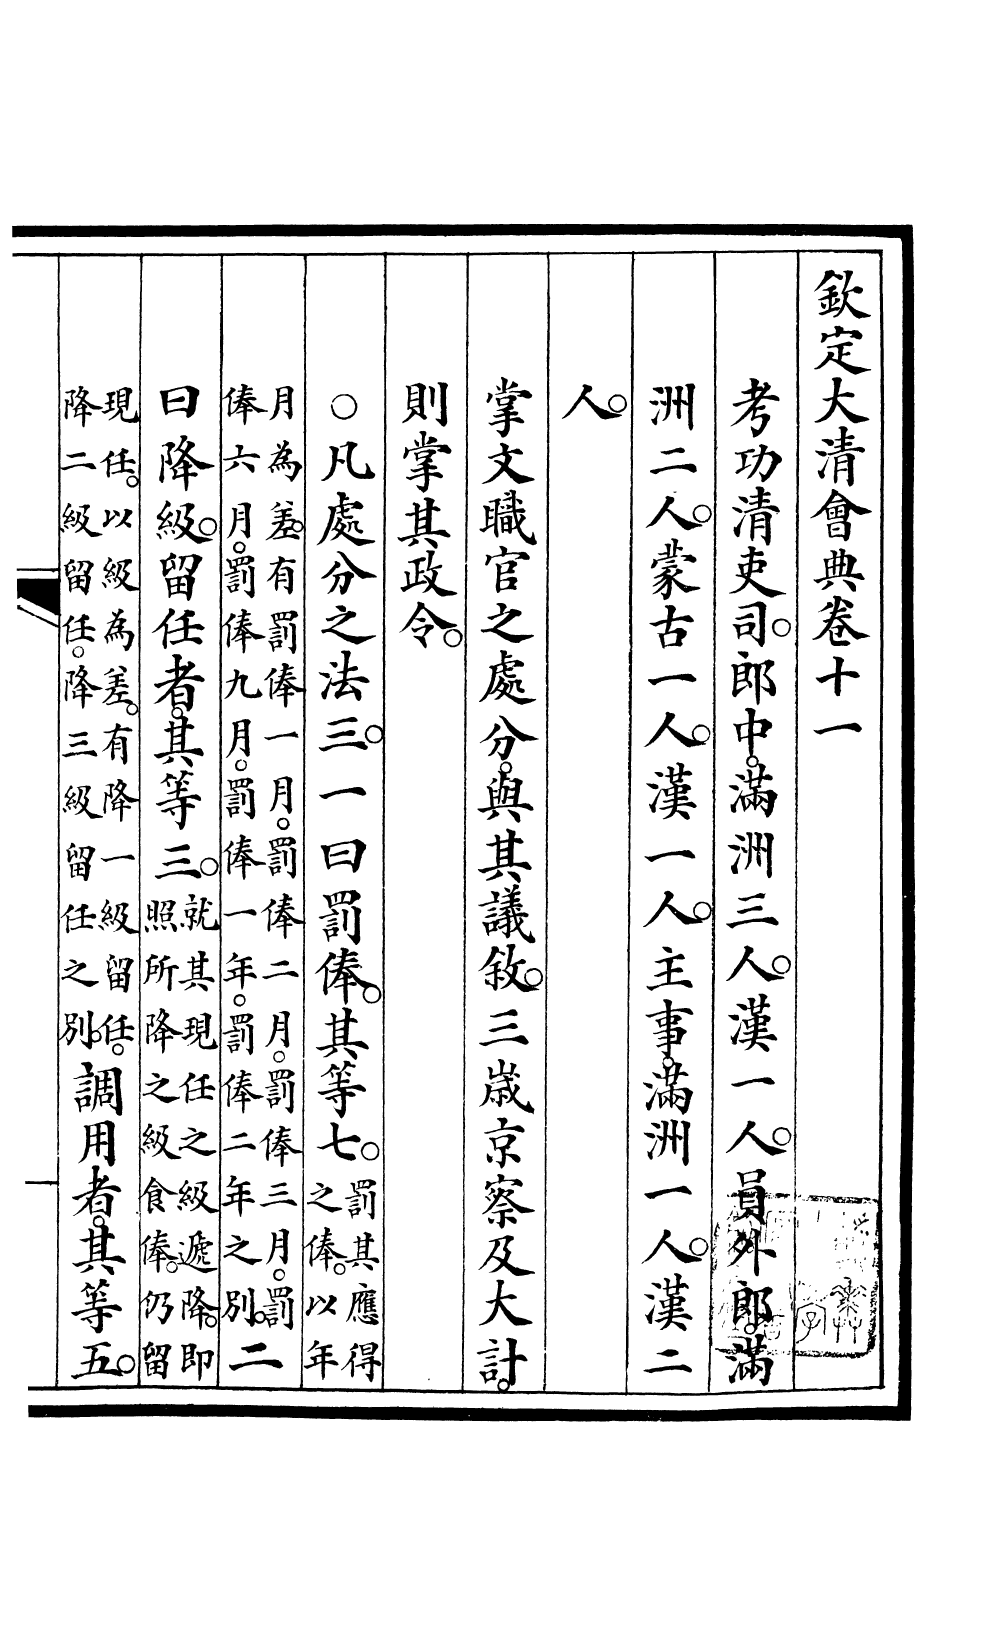 欽定大清會典卷十一
考功清吏司。郎中。滿洲三人。漢一人。員外郎。滿
洲二人。蒙古一人。漢一人。主事。滿洲一人。漢二
人。
掌文職官之處分。與其議敘。三歲京察及大計。
則掌其政令。
○凡處分之法三。一曰罰俸。其等七。罰其應得
之俸。以年
月為差。有罰俸一月。罰俸二月。罰俸三月。罰
俸六月。罰俸九月。罰俸一年。罰俸二年之別。二
曰降級。留任者。其等三。就其現任之級遞降。即
照所降之級食俸。仍留
現任。以級為差。有降一級留任。
降二級留任。降三級留任之別。調用者。其等五。